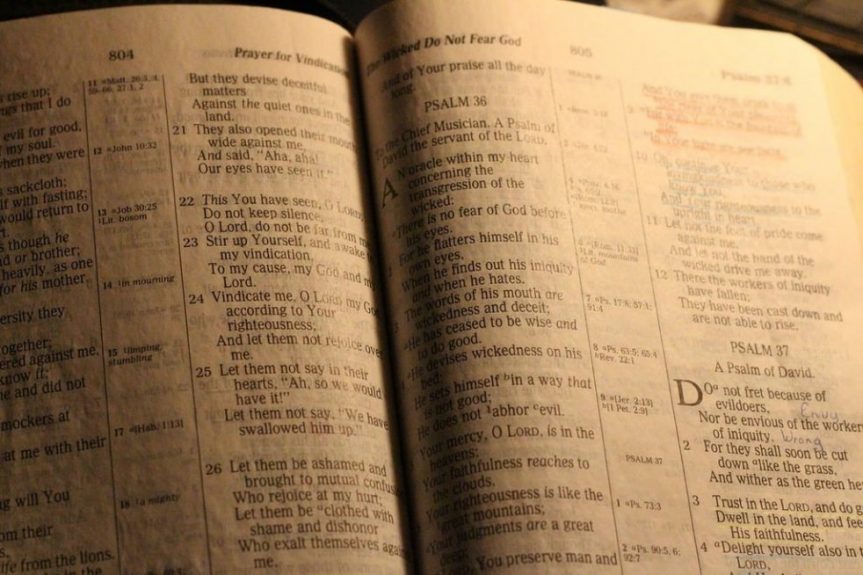 804
Prayer for Vindication
rise up;
ngs that I do
evil for good,
of my soul.
when they were
s sackcloth;
lf with fasting;
would return to
s though he
nd or brother;
heavily, as one
for his mother.
ersity they
ogether;
ered against me,
know it;
ne and did not
mockers at
at me with their
ng will You
om their
life from the lions.
11 Matt. 26:3, 4,
27:1, 2
12 John 10:32
13 Job 30:25
Lit. bosom
14 in mourning
15 limping,
stumbling
17 [Hab. 1:13]
18 a mighty
But they devise deceitful
matters
Against the quiet ones in the
land.
21 They also opened their mouth
wide against me,
And said, "Aha, aha!
Our eyes have seen it."
22 This You have seen, O LORD;
Do not keep silence.
O Lord, do not be far from me.
23 Stir up Yourself, and awake to
my vindication,
To my cause, my God and my
Lord.
24 Vindicate me, O LORD my God,
according to Your
righteousness;
And let them not rejoice over
me.
25 Let them not say in their
hearts, "Ah, so we would
have it!"
Let them not say, "We have
swallowed him up."
26 Let them be ashamed and
brought to mutual confusion
Who rejoice at my hurt;
Let them be clothed with
shame and dishonor
Who exalt themselves against
me.
The Wicked Do Not Fear God
805
Psalm 37:4
And of Your praise all the day
long.
PSALM 36
To the Chief Musician. A Psalm of
David the servant of the LORD.
AN oracle within my heart
concerning the
transgression of the
wicked:
There is no fear of God before
his eyes.
For he flatters himself in his
own eyes,
When he finds out his iniquity
and when he hates.
The words of his mouth are
wickedness and deceit;
He has ceased to be wise and
to do good.
He devises wickedness on his
bed;
He sets himself bin a way that
is not good;
He does not 1abhor cevil.
Your mercy, O LORD, is in the
heavens;
Your faithfulness reaches to
the clouds.
Your righteousness is like the
great mountains;
Your judgments are a great
deep;
You preserve man and
of God
7 aPs. 17:8; 57:1;
91:4
8 aPs. 63:5; 65:4
bRev. 22:1
9 a[Jer. 2:13]
b[1 Pet. 2:9]
PSALM 37
1 aPs. 73:3
2 aPs. 90:5, 6;
92:7
upright in heart.
11 Let not the foot of pride come
against me,
And let not the hand of the
wicked drive me away.
12 There the workers of iniquity
have fallen;
They have been cast down and
are not able to rise.
PSALM 37
A Psalm of David.
DOa not fret because of
evildoers,
Envy
Nor be envious of the workers
of iniquity.
Wrong
2 For they shall soon be cut
down alike the grass,
And wither as the green he
3 Trust in the LORD, and do g
Dwell in the land, and fee
His faithfulness.
4 aDelight yourself also in t
LORD,